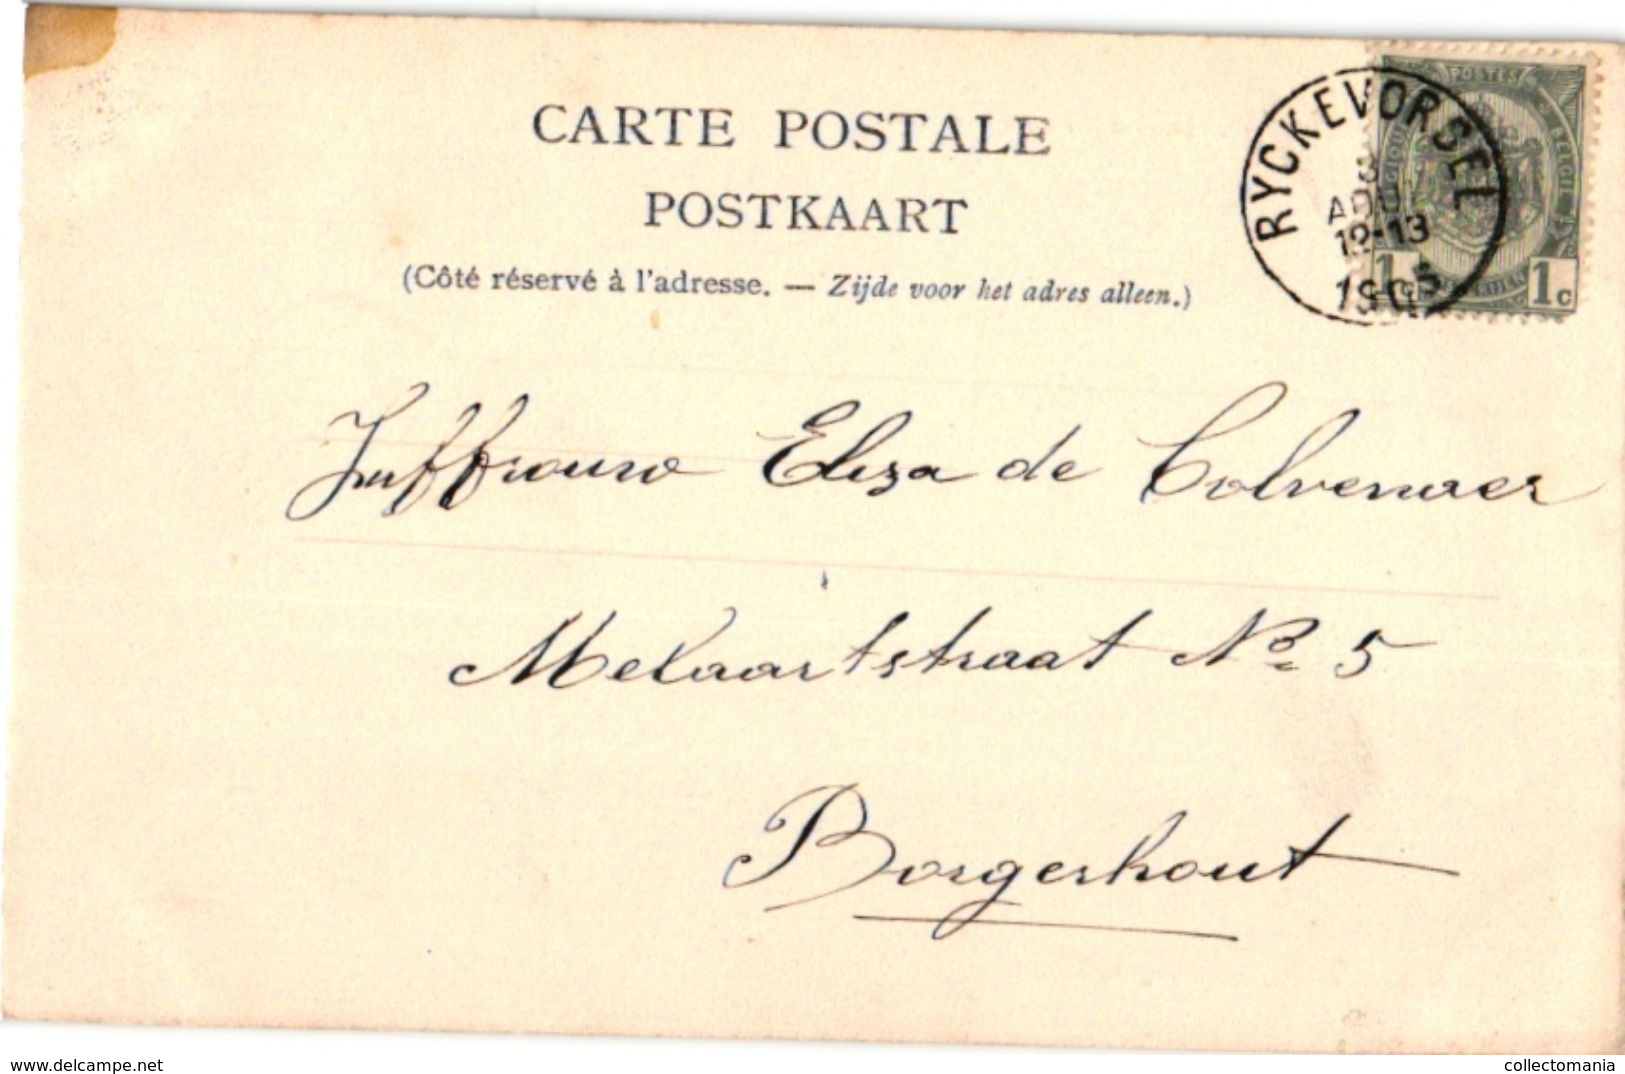 CARTE POSTALE
POSTKAART
(Côté réservé à l'adresse. — Zijde voor het adres alleen.)
RYCKEVORSEL
3
AOUT
12-13
1905
POSTES
BELGIQUE
BELGIE
1c
1c
Juffrouw Eliza de Colvenaer
Mekaartstraat No 5
Borgerhout
www.delcampe.net
collectomania